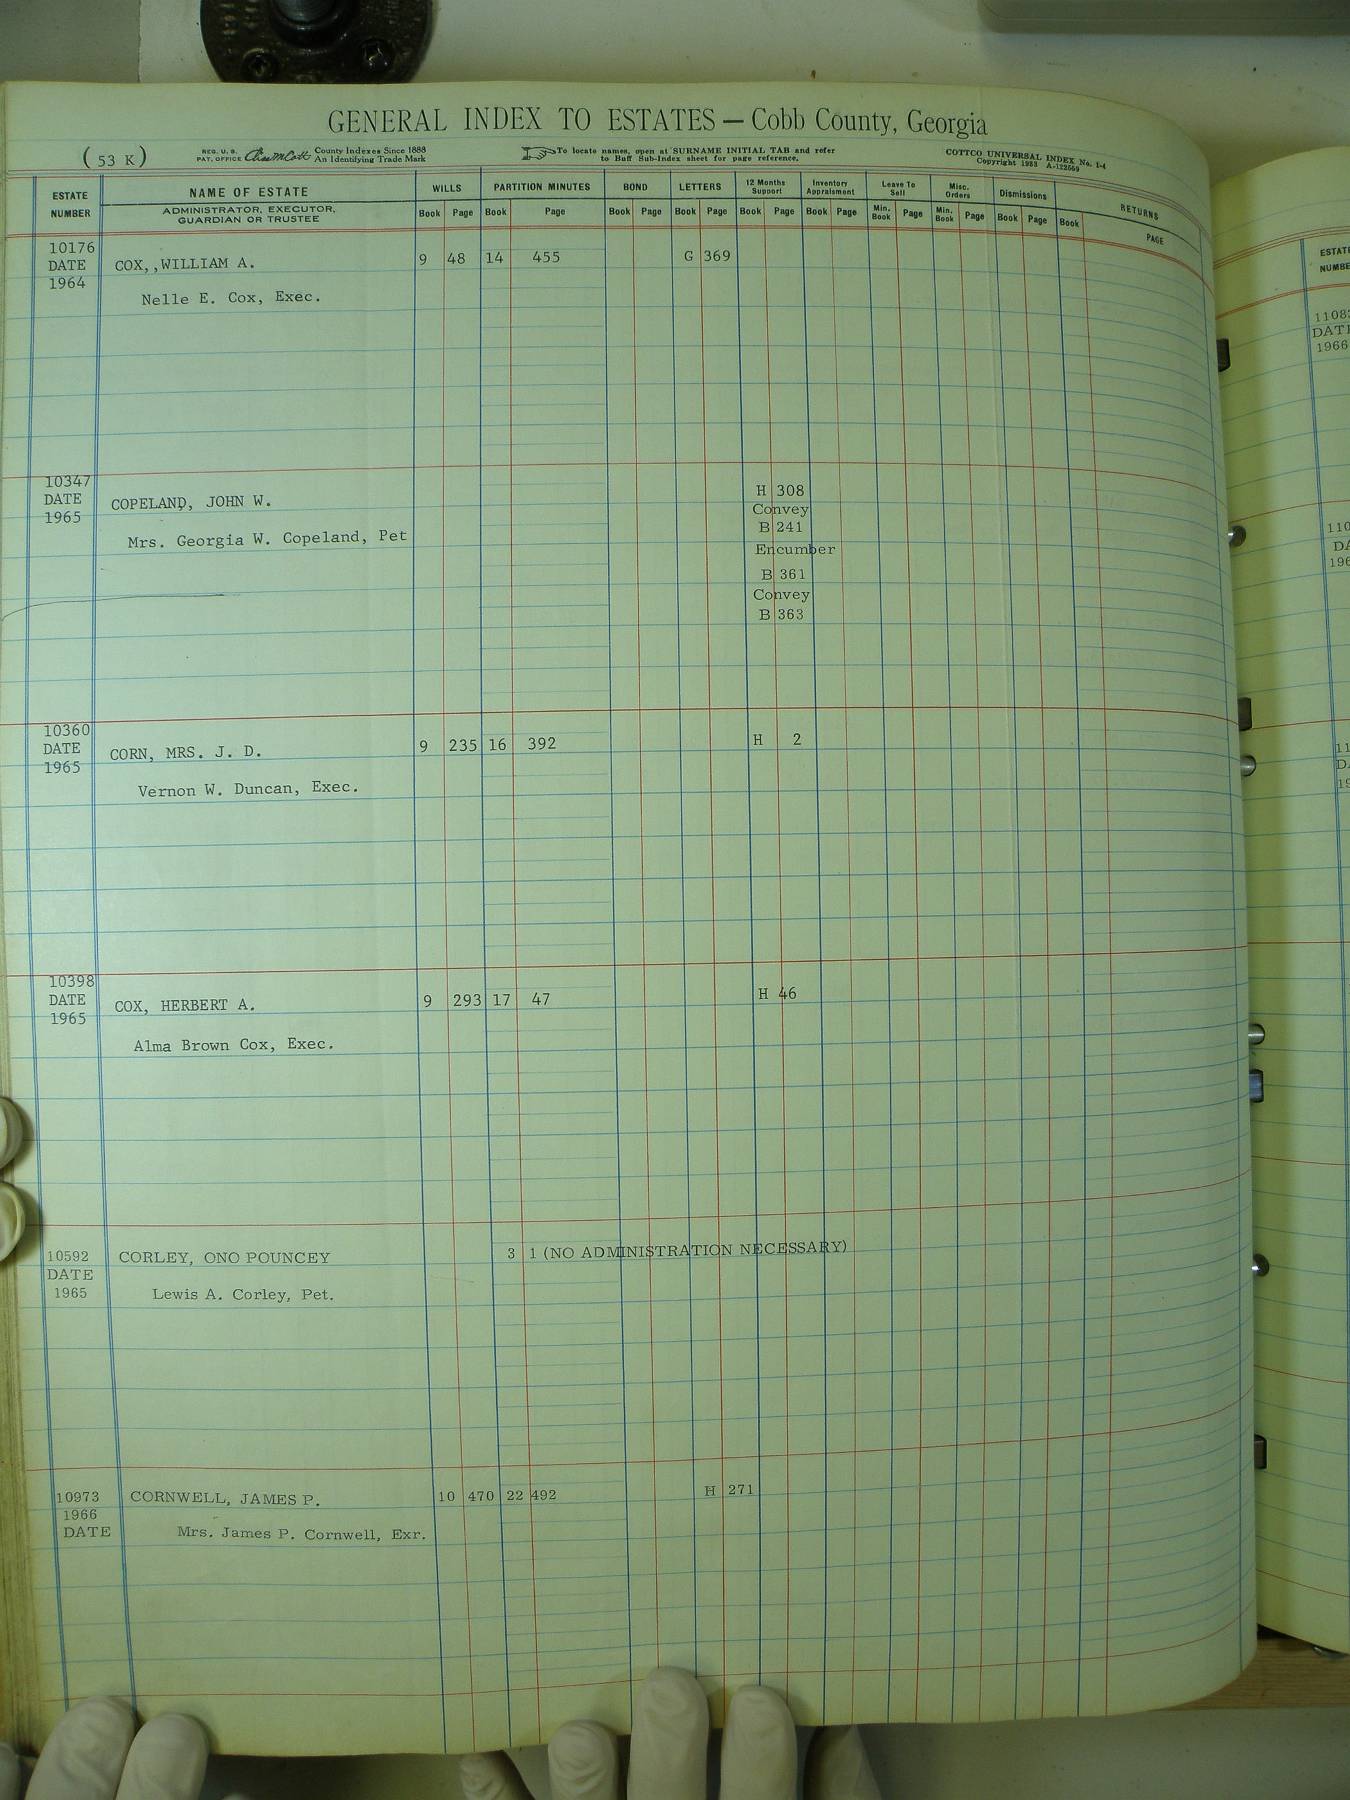 GENERAL INDEX TO ESTATES — Cobb County, Georgia
( 53 K )
REG. U. S. PAT. OFFICE
County Indexes Since 1888
An Identifying Trade Mark
To locate names, open at SURNAME INITIAL TAB and refer
to Buff Sub-Index sheet for page reference.
COTTCO UNIVERSAL INDEX No. 1-4
ESTATE NUMBER
NAME OF ESTATE
ADMINISTRATOR, EXECUTOR,
GUARDIAN OR TRUSTEE
WILLS PARTITION MINUTES BOND LETTERS 12 Months Support Inventory Appraisment Leave To Sell Misc. Orders Dismissions RETURNS
Book Page Book Page Book Page Book Page Book Page Book Page Min. Book Page Min. Book Page Book Page Book PAGE
10176
DATE
1964
COX,,WILLIAM A. 9 48 14 455 G 369
Nelle E. Cox, Exec.
10347
DATE
1965
COPELAND, JOHN W. H 308
Convey
B 241
Mrs. Georgia W. Copeland, Pet
Encumber
B 361
Convey
B 363
10360
DATE
1965
CORN, MRS. J. D. 9 235 16 392 H 2
Vernon W. Duncan, Exec.
10398
DATE
1965
COX, HERBERT A. 9 293 17 47 H 46
Alma Brown Cox, Exec.
10592
DATE
1965
CORLEY, ONO POUNCEY 3 1 (NO ADMINISTRATION NECESSARY)
Lewis A. Corley, Pet.
10973
1966
DATE
CORNWELL, JAMES P. 10 470 22 492 H 271
Mrs. James P. Cornwell, Exr.
1966